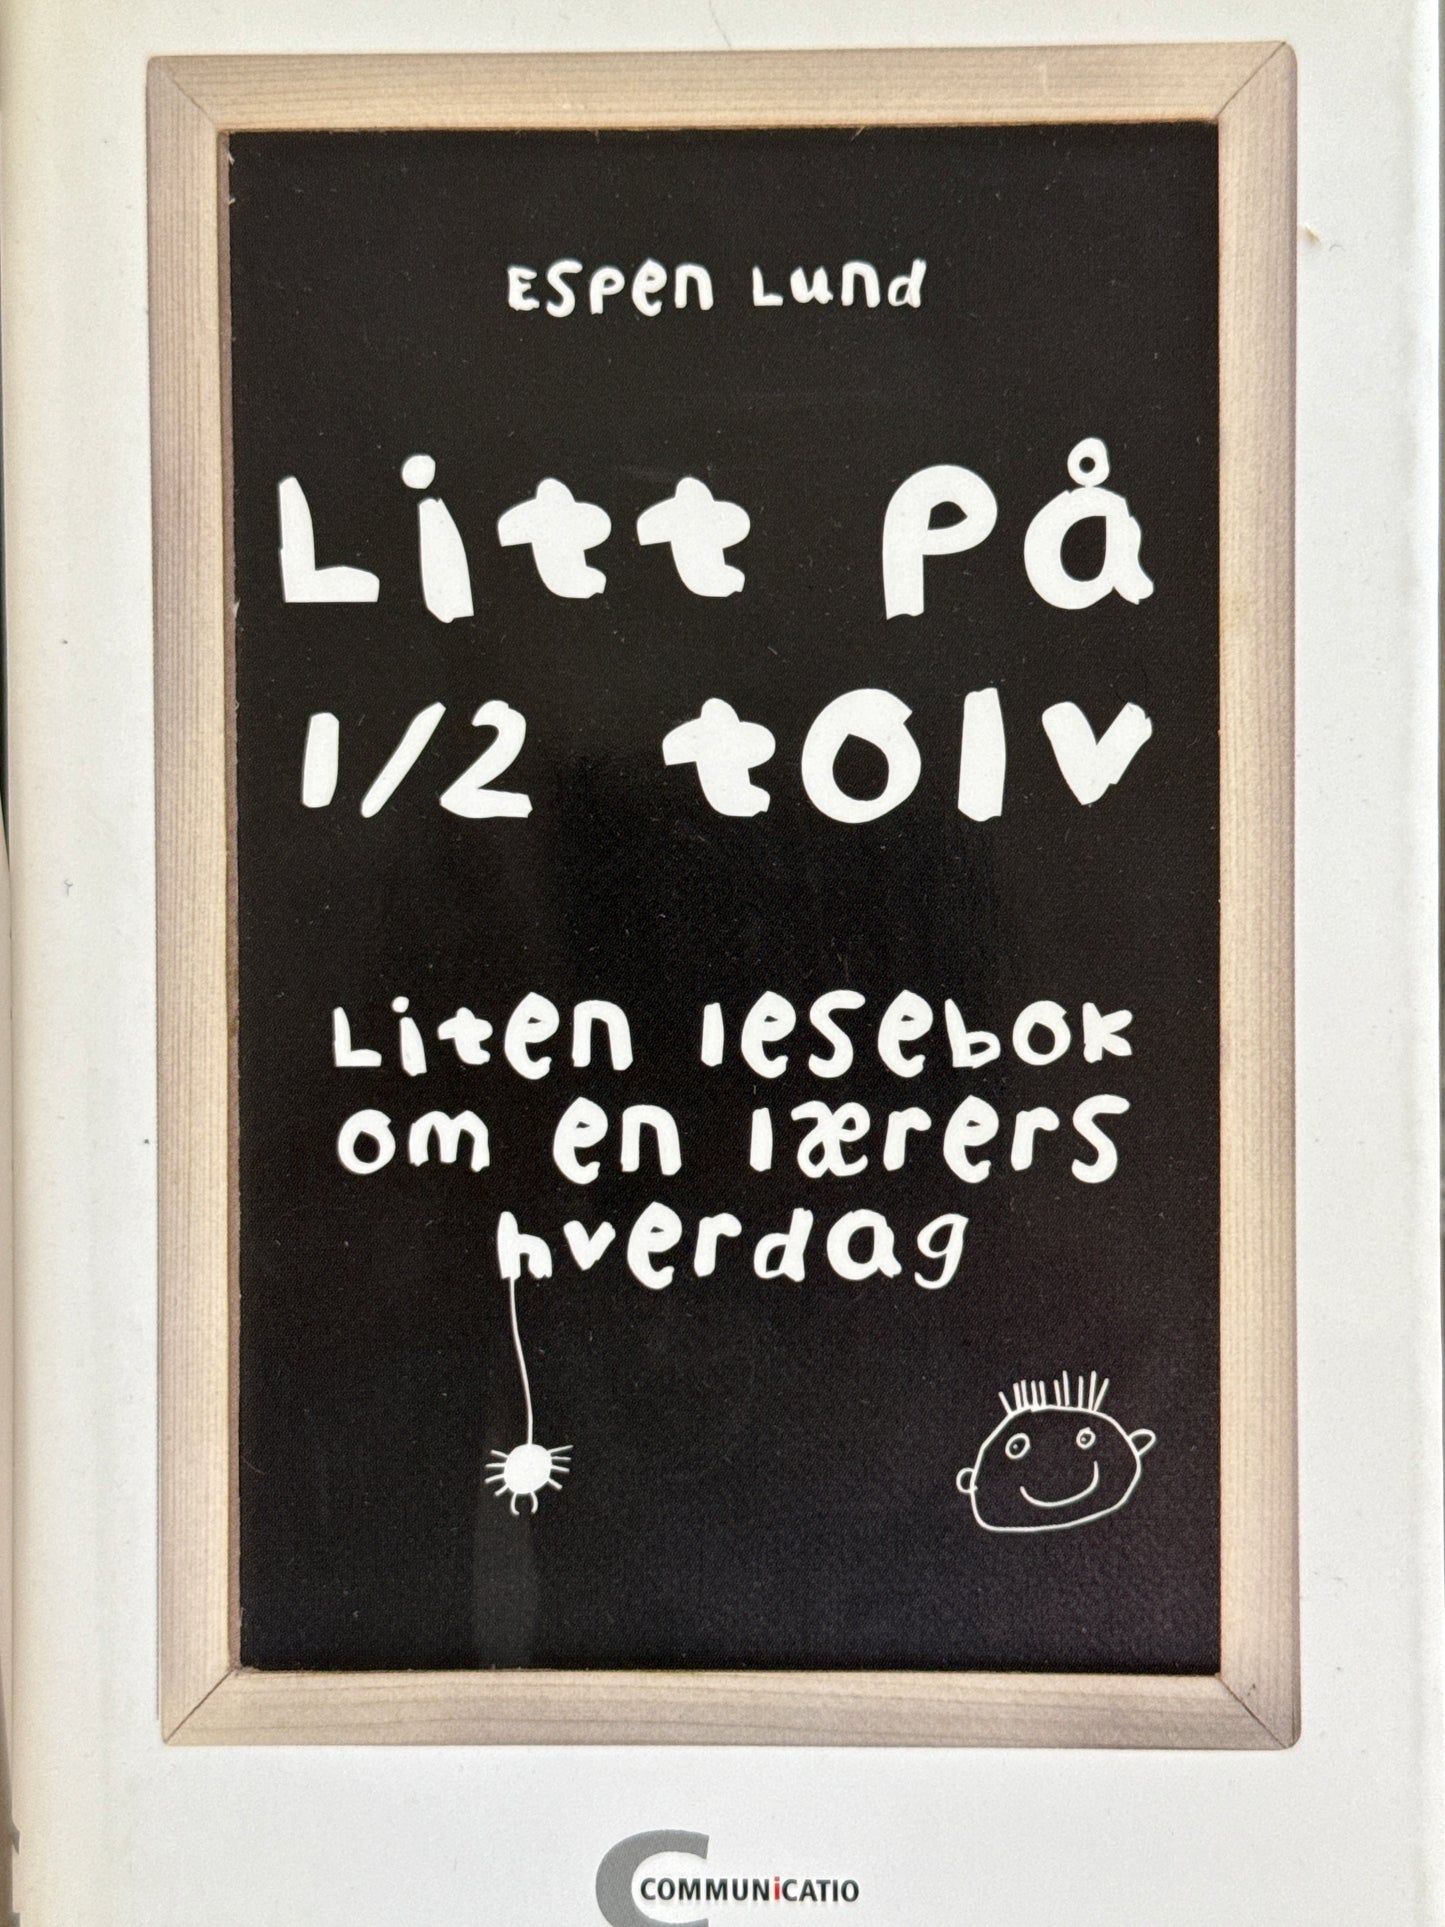 Espen Lund
Litt på
1/2 tolv
Liten lesebok
om en lærers
hverdag
COMMUNiCATIO